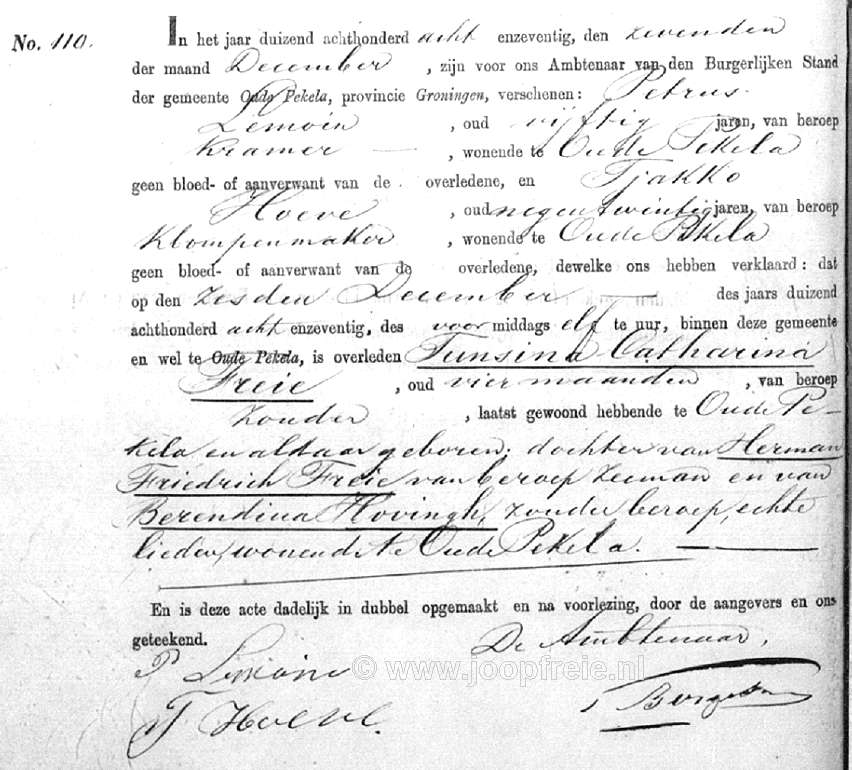 No. 110.
In het jaar duizend achthonderd acht enzeventig, den zevenden
der maand December, zijn voor ons Ambtenaar van den Burgerlijken Stand
der gemeente Oude Pekela, provincie Groningen, verschenen: Petrus
Lemoin, oud vijftig jaren, van beroep
Kramer —, wonende te Oude Pekela
geen bloed- of aanverwant van de overledene, en Tjakko
Hoeve, oud negentwintig jaren, van beroep
Klompenmaker, wonende te Oude Pekela
geen bloed- of aanverwant van de overledene, dewelke ons hebben verklaard: dat
op den zesden December — des jaars duizend
achthonderd acht enzeventig, des voor middags elf te uur, binnen deze gemeente
en wel te Oude Pekela, is overleden Tunsina Catharina
Freie, oud vier maanden, van beroep
zonder, laatst gewoond hebbende te Oude Pe-
kela en aldaar geboren; dochter van Herman
Friedrich Freie van beroep zeeman en van
Berendina Hovingh, zonder beroep, echte
lieden, wonende te Oude Pekela. —
En is deze acte dadelijk in dubbel opgemaakt en na voorlezing, door de aangevers en ons
geteekend. De Ambtenaar,
P Lemoine
© www.joopfreie.nl
T Hoeve.